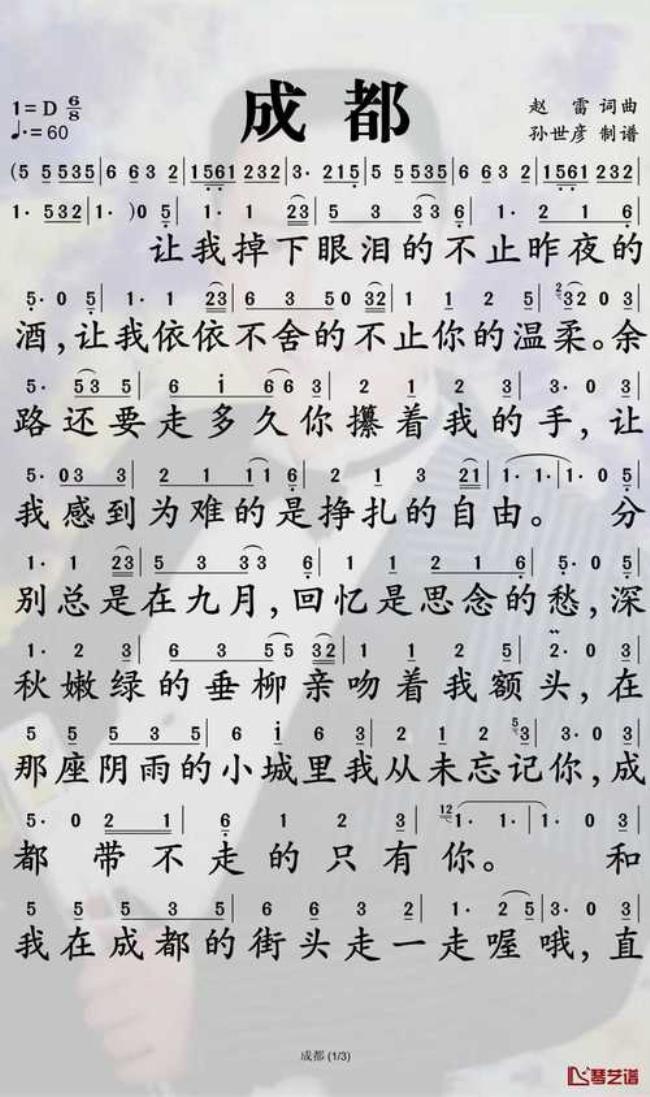 成都
1=D 6/8
♩.=60
赵 雷 词曲
孙世彦 制谱
(5 5 535|6 63 2|1561 232|3· 215|5 5 535|6 63 2|1561 232|
1· 532|1· )0 5|1· 1 23|5 3 33 6|1· 2 1 6|
让我掉下眼泪的不止昨夜的
5·0 5|1·1 23|6 3 50 32|1 1 2 5|2 32 0 3|
酒,让我依依不舍的不止你的温柔。余
5· 53 5|6 i 66 3|2 1 2 3|3·0 3|
路还要走多久你攥着我的手,让
5·03 3|2 1 11 6|2 1 3 21|1· 1·|1·0 5|
我感到为难的是挣扎的自由。 分
1·1 23|5 3 33 6|1 1 2 1 6|5·0 5|
别总是在九月,回忆是思念的愁,深
1·2 3|6 3 55 32|1 1 2 5|2·0 3|
秋嫩绿的垂柳亲吻着我额头,在
5 5 5 3 5|6 i 6 3|2 1 2 5 3|3·0 3|
那座阴雨的小城里我从未忘记你,成
5·0 2 1|6 1 2 3|12 1· 1·|1·0 3|
都 带不走的只有你。 和
5 5 5 3 5|6 6 3 2|1·2 5|3·0 3|
我在成都的街头走一走喔哦,直
成都 (1/3)
琴艺谱